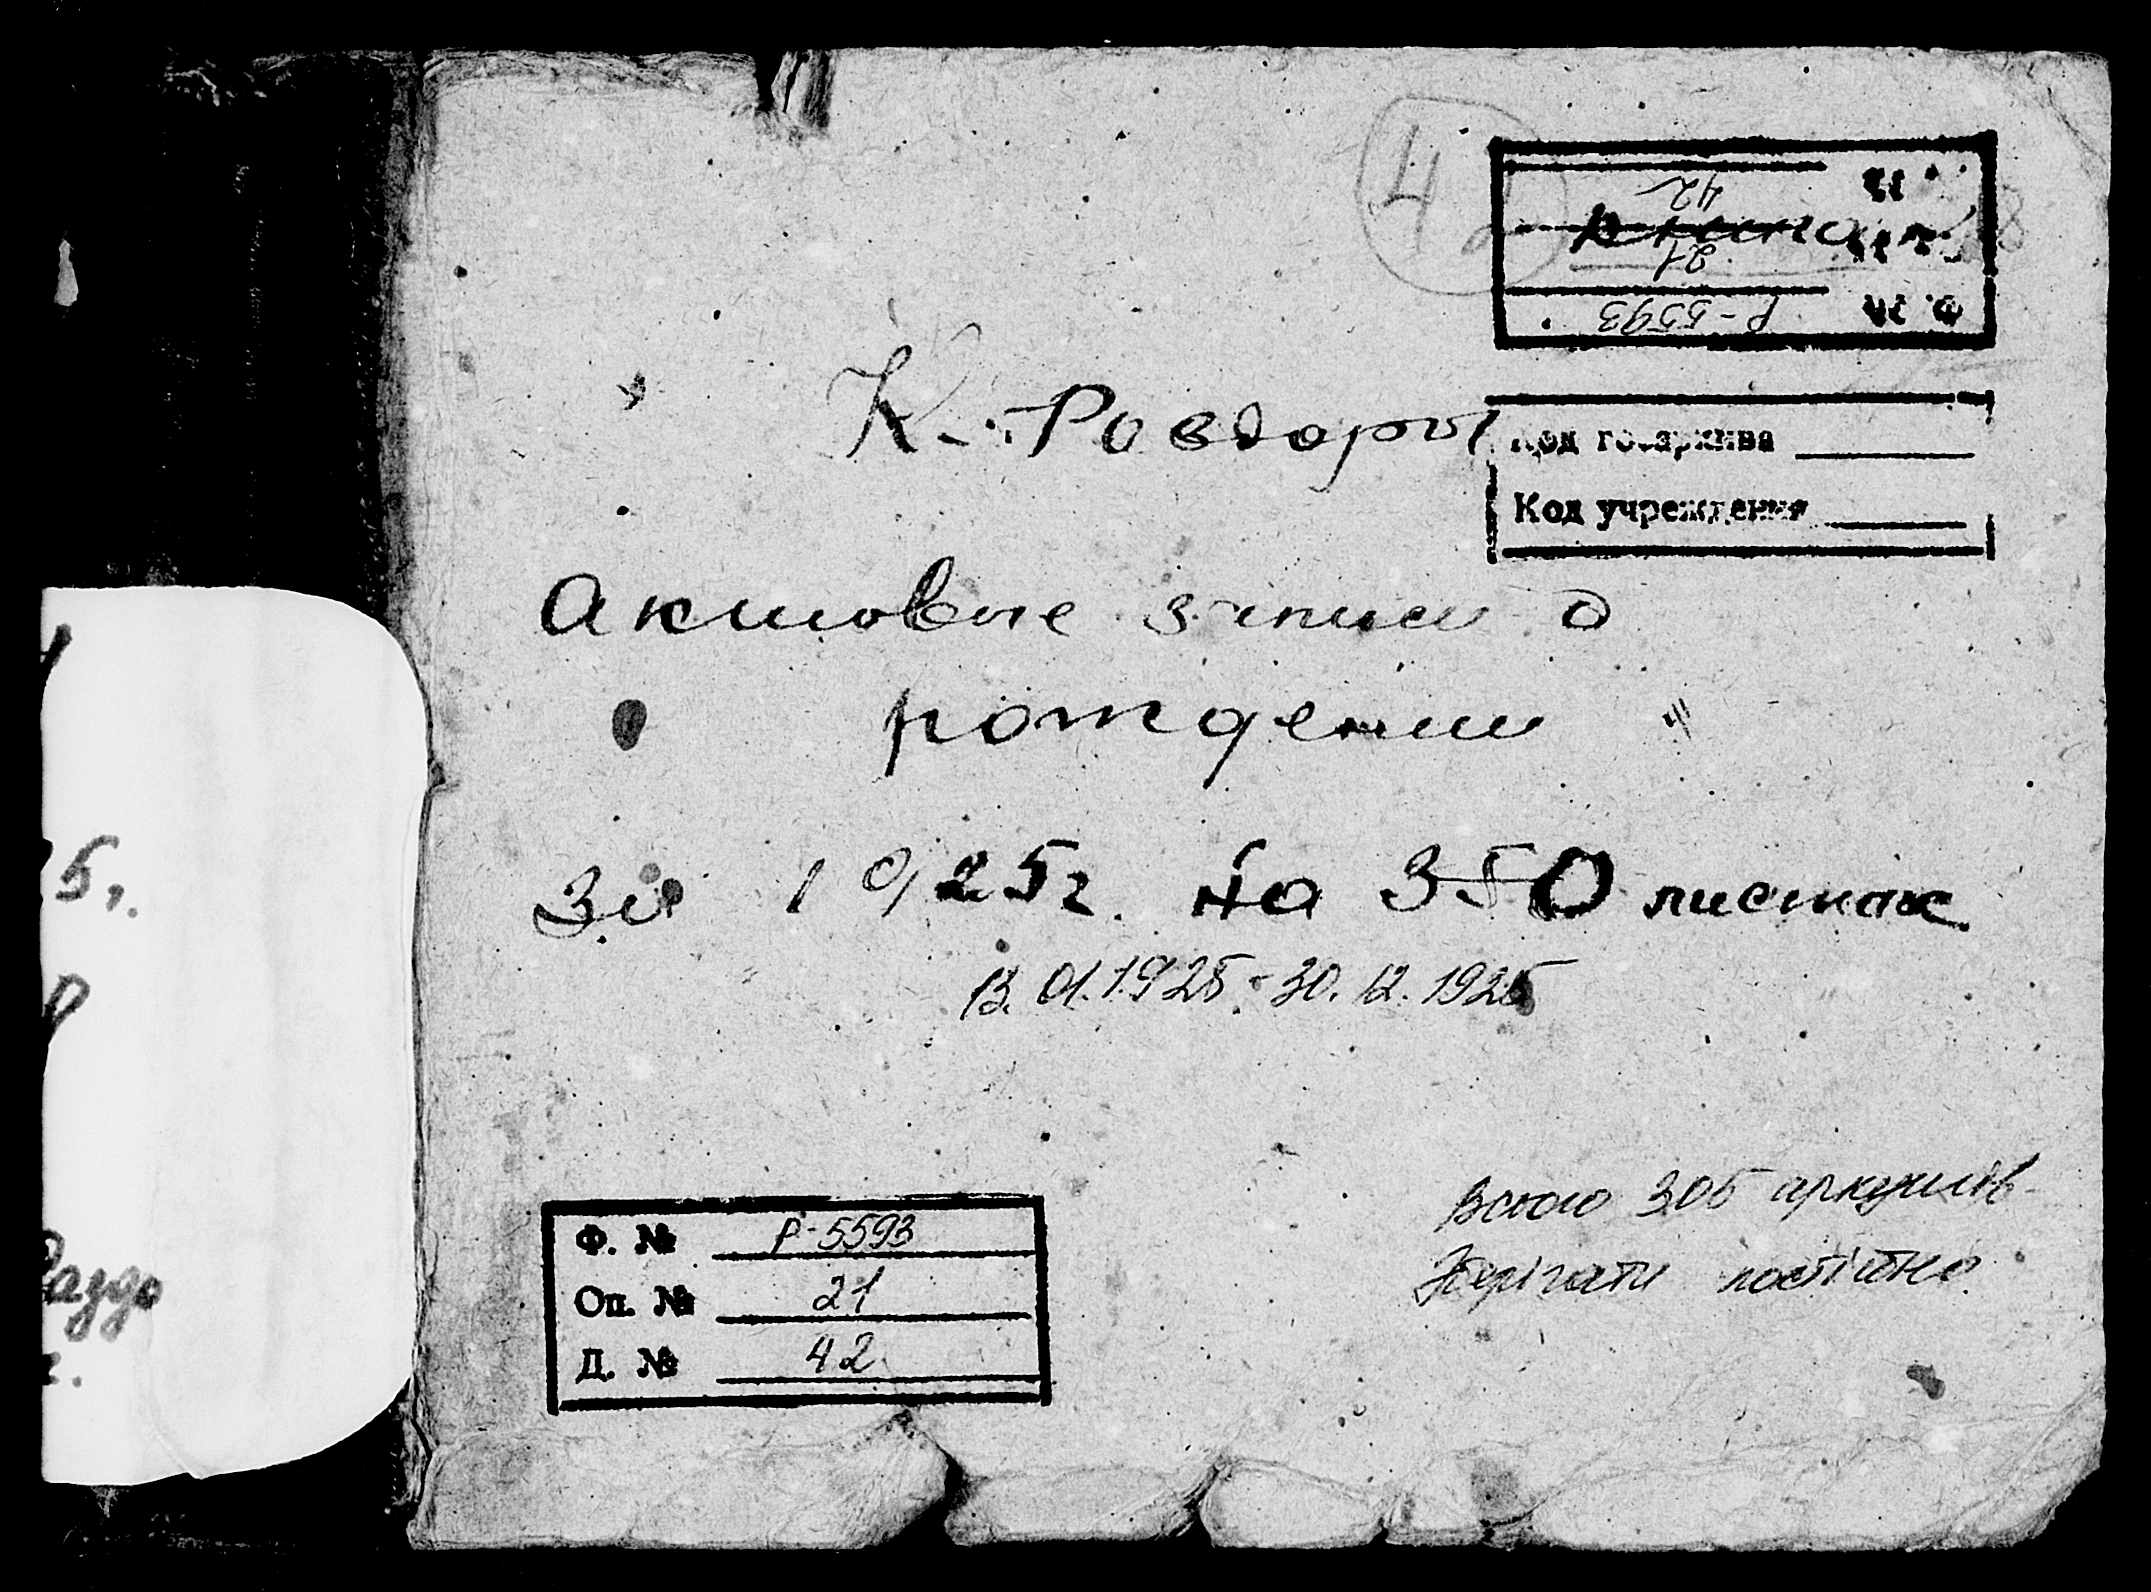 42
Ф. № Р-5593
21
42
К.-Роздоры
Код госархива
Код учреждения
Актовые записи о
рождении "
За 1925г. на 350 листах
13.01.1925-30.12.1925
Ф. № Р-5593
Оп. № 21
Д. № 42
Всього 305 аркушів
Зберігати постійно.
5.
Раздо
г.